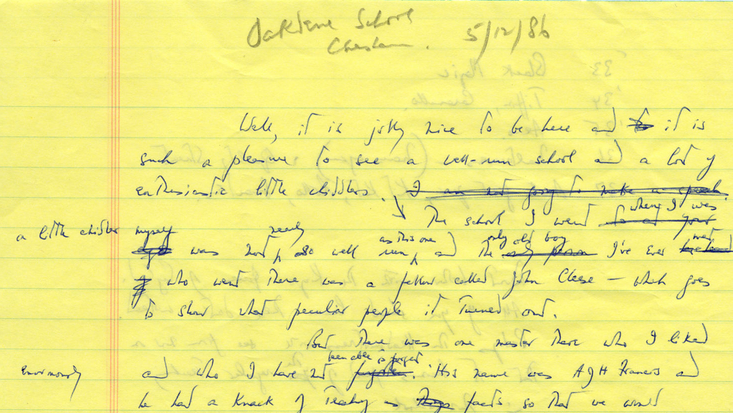 Oaklene School
Chesham. 5/12/86
Well, it is jolly nice to be here and it is
such a pleasure to see a well-run school and a lot of
enthusiastic little chiddlers. I am not going to make a speech.
The school I went where I was
a little chiddler myself was not nearly so well run as this one, and the only old boy I've ever met
who went there was a fellow called John Cleese – which goes
to show what peculiar people it turned out.
But there was one master there who I liked
enormously and who I have not been able to forget. His name was AJH Francis and
he had a knack of teaching facts so that we would